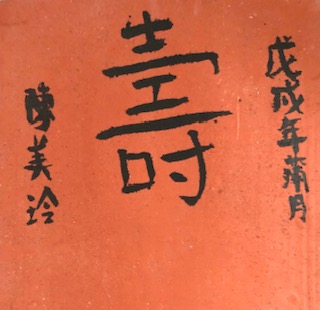 戊戌年蒲月
壽
陳美玲